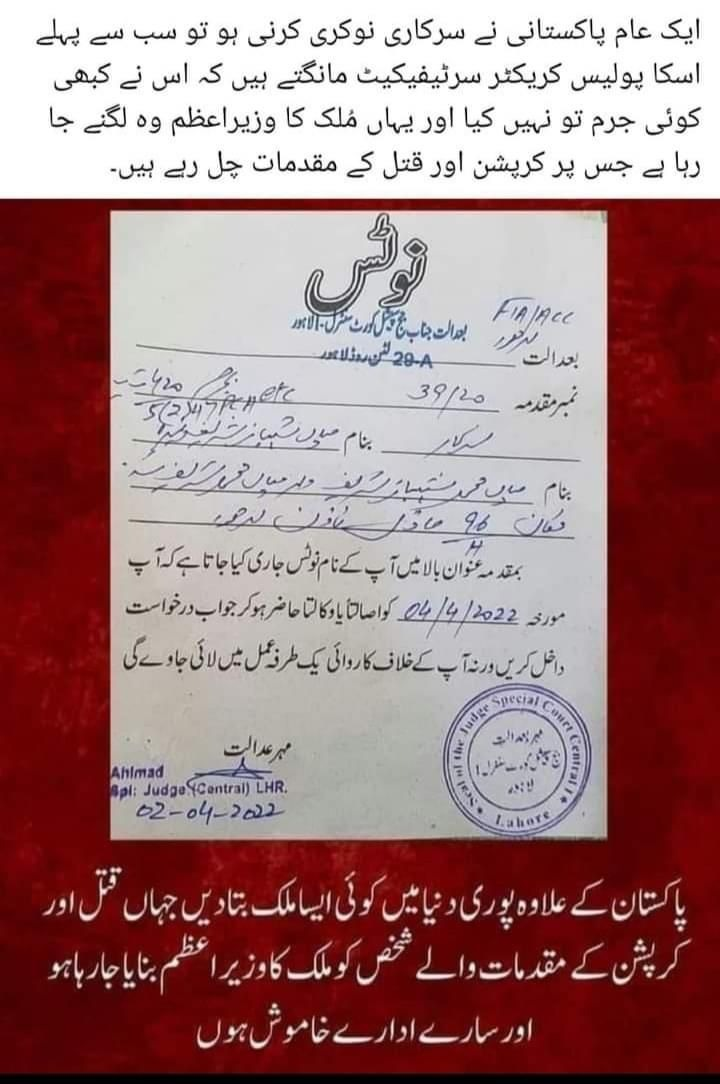 ایک عام پاکستانی نے سرکاری نوکری کرنی ہو تو سب سے پہلے
اسکا پولیس کریکٹر سرٹیفیکیٹ مانگتے ہیں کہ اس نے کبھی
کوئی جرم تو نہیں کیا اور یہاں مُلک کا وزیراعظم وہ لگنے جا
رہا ہے جس پر کرپشن اور قتل کے مقدمات چل رہے ہیں۔
نوٹس
FIA/ACC
لاہور
بعدالت جناب جج سپیشل کورٹ سنٹرل-I لاہور
بعدالت
29-A لٹن روڈ لاہور
نمبر مقدمہ 39/20 etc
سرکار بنام میاں شہباز شریف وغیرہ
بنام میاں محمد شہباز شریف ولد میاں محمد شریف
مکان 96 H ماڈل ٹاؤن لاہور
بمقدمہ عنوان بالا میں آپ کے نام نوٹس جاری کیا جاتا ہے کہ آپ
مورخہ 04/4/2022 کو اصالتاً یا وکالتاً حاضر ہو کر جواب درخواست
داخل کریں ورنہ آپ کے خلاف کاروائی یک طرفہ عمل میں لائی جاوے گی
مہر عدالت
Ahlmad
Spl: Judge (Central) LHR.
02-04-2022
Seal of the Judge Special Court Central I
Lahore
مہر عدالت
جج سپیشل کورٹ سنٹرل I
لاہور
پاکستان کے علاوہ پوری دنیا میں کوئی ایسا ملک بتا دیں جہاں قتل اور
کرپشن کے مقدمات والے شخص کو ملک کا وزیر اعظم بنایا جا رہا ہو
اور سارے ادارے خاموش ہوں